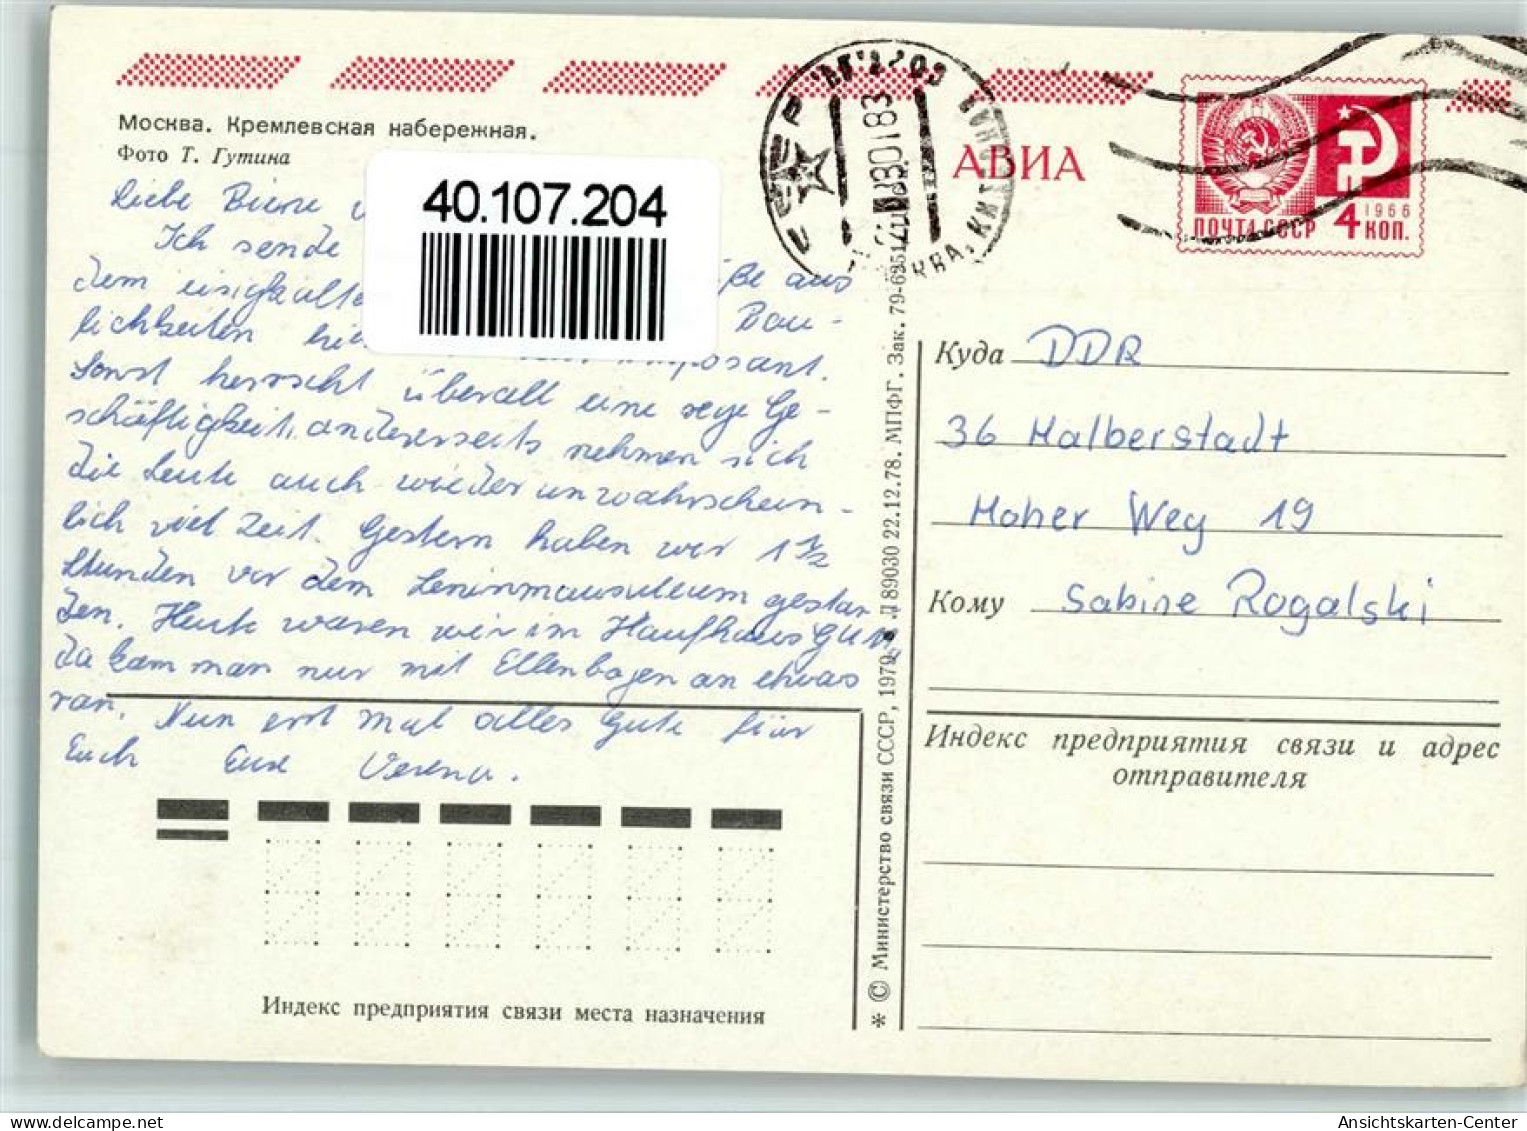 Москва. Кремлевская набережная.
Фото Т. Гутина
40.107.204
Liebe Biene
Ich sende
aus
dem eisigkalten
Bau-
lichkeiten imposant.
Sonst herrscht überall eine rege Ge-
schäftigkeit, andererseits nehmen sich
die Leute auch wieder unwahrschein-
lich viel Zeit. Gestern haben wir 1 ½
Stunden vor dem Leninmausuleum gestan
den. Heute waren wir im Kaufhaus GUM,
da kam man nur mit Ellenbogen an etwas
ran. Nun erst mal alles Gute für
Euch Eure Verena.
Индекс предприятия связи места назначения
* © Министерство связи СССР, 1979. Л 89030 22.12.78. МПФГ. Зак. 79-6251
СССР
300183
АВИА
ПОЧТА СССР
1966
4 КОП.
Куда DDR
36 Halberstadt
Hoher Weg 19
Кому Sabine Rogalski
Индекс предприятия связи и адрес
отправителя
www.delcampe.net
Ansichtskarten-Center